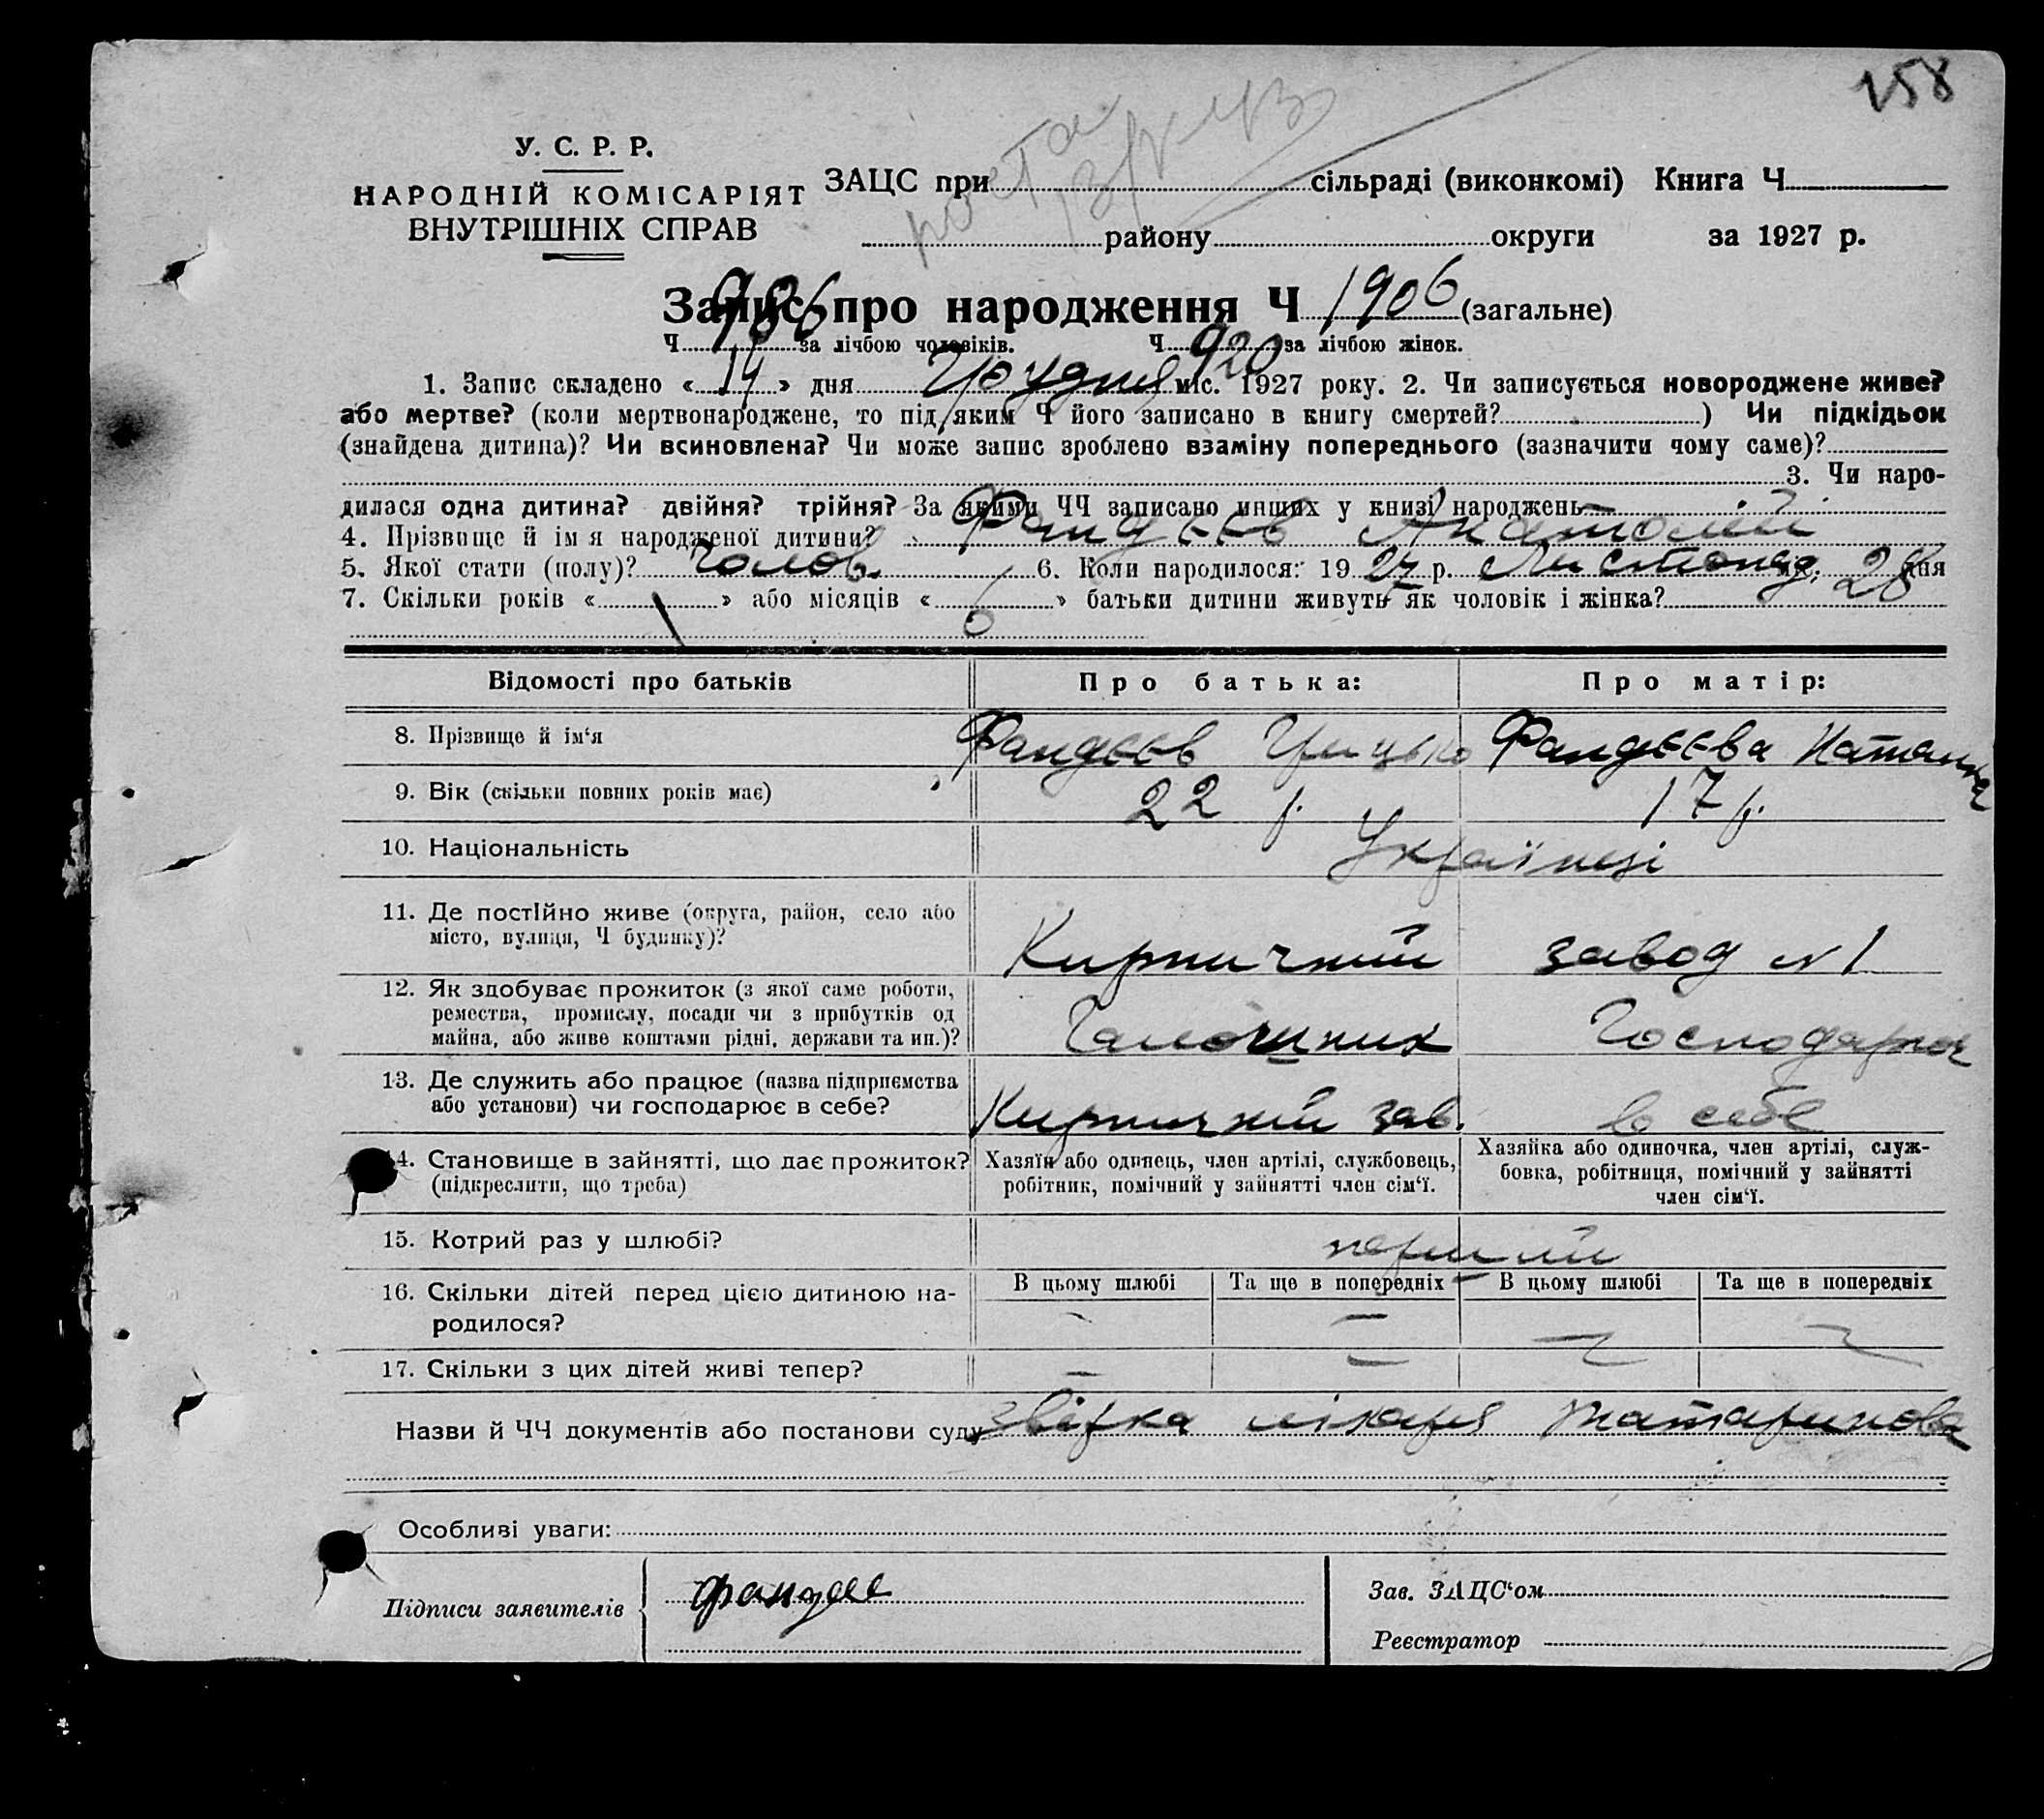 158
У. С. Р. Р.
НАРОДНІЙ КОМІСАРІЯТ
ВНУТРІШНІХ СПРАВ
ЗАЦС при сільраді (виконкомі) Книга Ч
району округи за 1927 р.
Запис про народження Ч 1906 (загальне)
Ч 986 за лічбою чоловіків. Ч 920 за лічбою жінок.
1. Запис складено « 14 » дня Грудня міс. 1927 року. 2. Чи записується новороджене живе?
або мертве? (коли мертвонароджене, то під яким Ч його записано в книгу смертей? ) Чи підкідьок
(знайдена дитина)? Чи всиновлена? Чи може запис зроблено взаміну попереднього (зазначити чому саме)?
3. Чи наро-
дилася одна дитина? двійня? трійня? За якими ЧЧ записано инших у книзі народжень
4. Прізвище й ім я народженої дитини? Фандєєв Анатолій
5. Якої стати (полу)? чолов. 6. Коли народилося: 19 27 р. Листопад міс. 28 дня
7. Скільки років « » або місяців « 6 » батьки дитини живуть як чоловік і жінка?
Відомості про батьків Про батька: Про матір:
8. Прізвище й ім‘я Фандєєв Грицько Фандєєва Наталка
9. Вік (скільки повних років має) 22 р. 17 р.
10. Національність Українці
11. Де постійно живе (округа, район, село або
місто, вулиця, Ч будинку)? Кирпичний завод № 1
12. Як здобуває прожиток (з якої саме роботи,
ремества, промислу, посади чи з прибутків од
майна, або живе коштами рідні, держави та ин.)? Господарка
13. Де служить або працює (назва підприємства
або установи) чи господарює в себе? Кирпичний зав. в себе
14. Становище в зайнятті, що дає прожиток?
(підкреслити, що треба)
Хазяїн або одинець, член артілі, службовець,
робітник, помічний у зайнятті член сім‘ї.
Хазяйка або одиночка, член артілі, служ-
бовка, робітниця, помічний у зайнятті
член сім‘ї.
15. Котрий раз у шлюбі? перший
16. Скільки дітей перед цією дитиною на-
родилося?
В цьому шлюбі Та ще в попередніх В цьому шлюбі Та ще в попередніх
17. Скільки з цих дітей живі тепер?
Назви й ЧЧ документів або постанови суду лікаря Татаринова
Особливі уваги:
Підписи заявителів Фандєє
Зав. ЗАЦС‘ом
Реєстратор